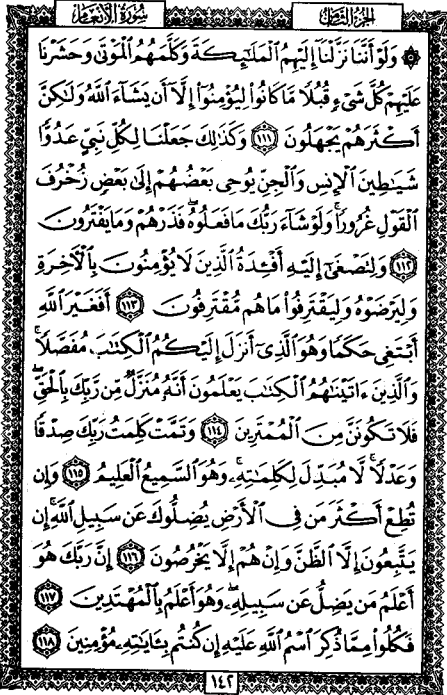 الجزء الثامن
سورة الأنعام
۞ وَلَوْ أَنَّنَا نَزَّلْنَا إِلَيْهِمُ الْمَلَٰٓئِكَةَ وَكَلَّمَهُمُ الْمَوْتَىٰ وَحَشَرْنَا
عَلَيْهِمْ كُلَّ شَيْءٍ قُبُلًا مَّا كَانُوا لِيُؤْمِنُوٓا إِلَّآ أَن يَشَآءَ اللَّهُ وَلَٰكِنَّ
أَكْثَرَهُمْ يَجْهَلُونَ ١١١ وَكَذَٰلِكَ جَعَلْنَا لِكُلِّ نَبِيٍّ عَدُوًّا
شَيَٰطِينَ الْإِنسِ وَالْجِنِّ يُوحِي بَعْضُهُمْ إِلَىٰ بَعْضٍ زُخْرُفَ
الْقَوْلِ غُرُورًا ۚ وَلَوْ شَآءَ رَبُّكَ مَا فَعَلُوهُ ۖ فَذَرْهُمْ وَمَا يَفْتَرُونَ
١١٢ وَلِتَصْغَىٰٓ إِلَيْهِ أَفْـِٔدَةُ الَّذِينَ لَا يُؤْمِنُونَ بِالْـَٔاخِرَةِ
وَلِيَرْضَوْهُ وَلِيَقْتَرِفُوا مَا هُم مُّقْتَرِفُونَ ١١٣ أَفَغَيْرَ اللَّهِ
أَبْتَغِي حَكَمًا وَهُوَ الَّذِيٓ أَنزَلَ إِلَيْكُمُ الْكِتَٰبَ مُفَصَّلًا ۚ
وَالَّذِينَ ءَاتَيْنَٰهُمُ الْكِتَٰبَ يَعْلَمُونَ أَنَّهُۥ مُنَزَّلٌ مِّن رَّبِّكَ بِالْحَقِّ ۖ
فَلَا تَكُونَنَّ مِنَ الْمُمْتَرِينَ ١١٤ وَتَمَّتْ كَلِمَتُ رَبِّكَ صِدْقًا
وَعَدْلًا ۚ لَّا مُبَدِّلَ لِكَلِمَٰتِهِۦ ۚ وَهُوَ السَّمِيعُ الْعَلِيمُ ١١٥ وَإِن
تُطِعْ أَكْثَرَ مَن فِي الْأَرْضِ يُضِلُّوكَ عَن سَبِيلِ اللَّهِ ۚ إِن
يَتَّبِعُونَ إِلَّا الظَّنَّ وَإِنْ هُمْ إِلَّا يَخْرُصُونَ ١١٦ إِنَّ رَبَّكَ هُوَ
أَعْلَمُ مَن يَضِلُّ عَن سَبِيلِهِۦ ۖ وَهُوَ أَعْلَمُ بِالْمُهْتَدِينَ ١١٧
فَكُلُوا مِمَّا ذُكِرَ اسْمُ اللَّهِ عَلَيْهِ إِن كُنتُم بِـَٔايَٰتِهِۦ مُؤْمِنِينَ ١١٨
١٤٢